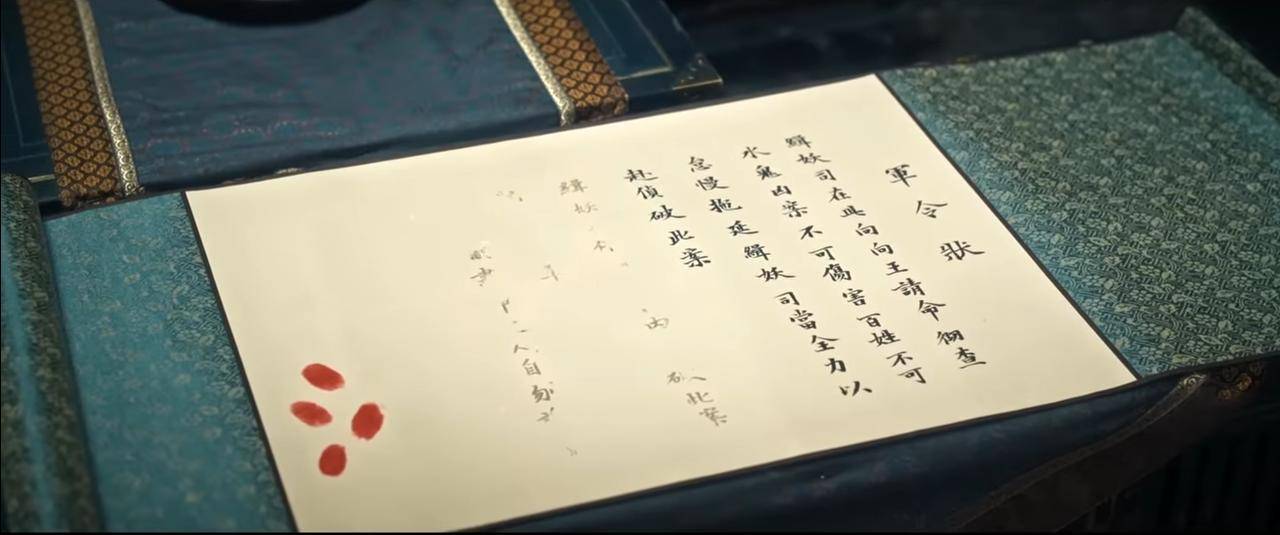 軍令狀
緝妖司在此向向王請命徹查
水鬼凶案不可傷害百姓不可
怠慢拖延緝妖司當全力以
赴偵破此案
緝妖內破此案
人自刎